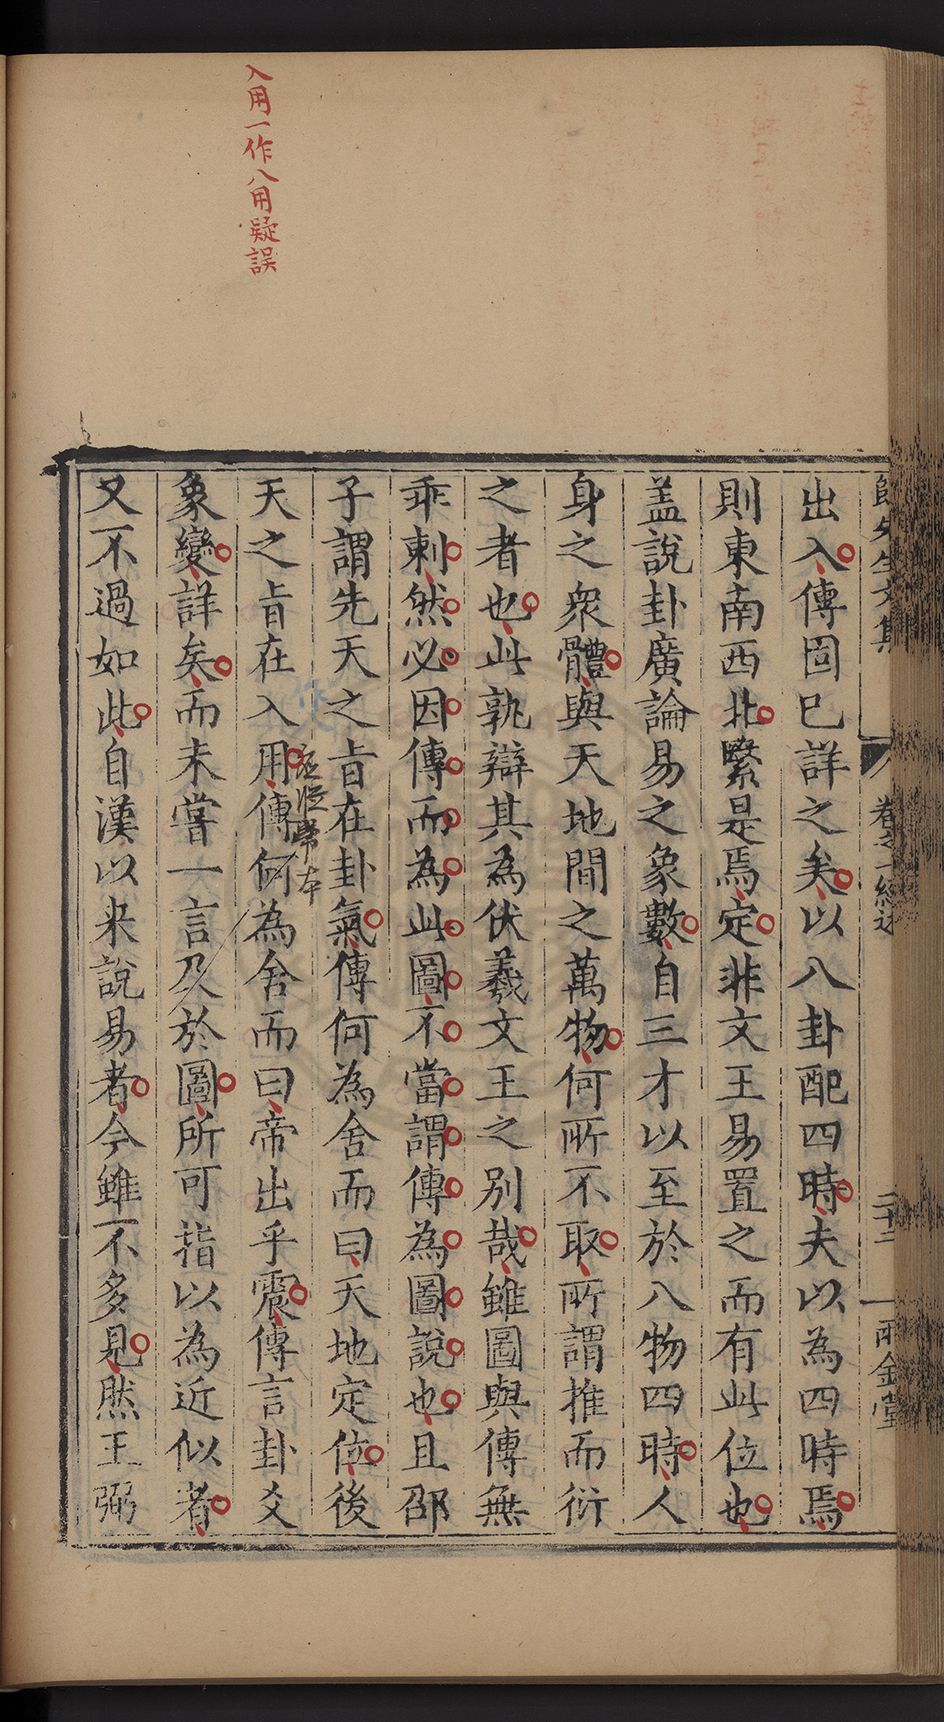 入用一作八用疑誤
出入傳固巳詳之矣以八卦配四時夫以為四時焉
則東南西北繄是焉定非文王易置之而有此位也
蓋說卦廣論易之象數自三才以至於八物四時人
身之衆體與天地間之萬物何所不取所謂推而衍
之者也此孰辯其為伏羲文王之別哉雖圖與傳無
乖剌然必因傳而為此圖不當謂傳為圖說也且邵
子謂先天之㫖在卦氣傳何為舍而曰天地定位後
天之㫖在入用傳何為舍而曰帝出乎震傳言卦爻
象變詳矣而未嘗一言及於圖所可指以為近似者
又不過如此自漢以来說易者今雖不多見然王弼
先生文集
卷之一
二十二
兩金堂